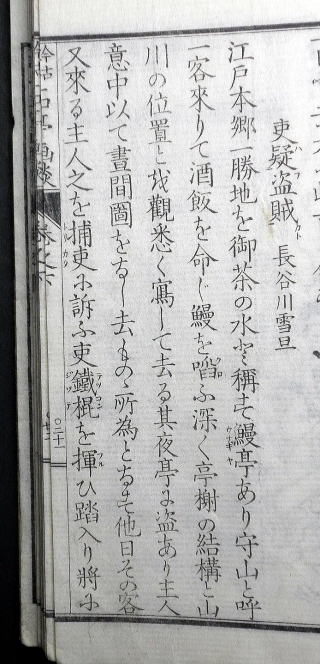 吏疑盗賊 長谷川雪旦
江戸本郷一勝地を御茶の水と稱す鰻亭あり守山と呼
一客來りて酒飯を命じ鰻を啗ふ深く亭榭の結構と山
川の位置とを觀悉く寫して去る其夜亭に盗あり主人
意中以て晝間圖をなし去もの丶所為となす他日その客
又來る主人之を捕吏に訴ふ吏鐵棍を揮ひ踏入り將に
石亭画談 卷之下
二十一